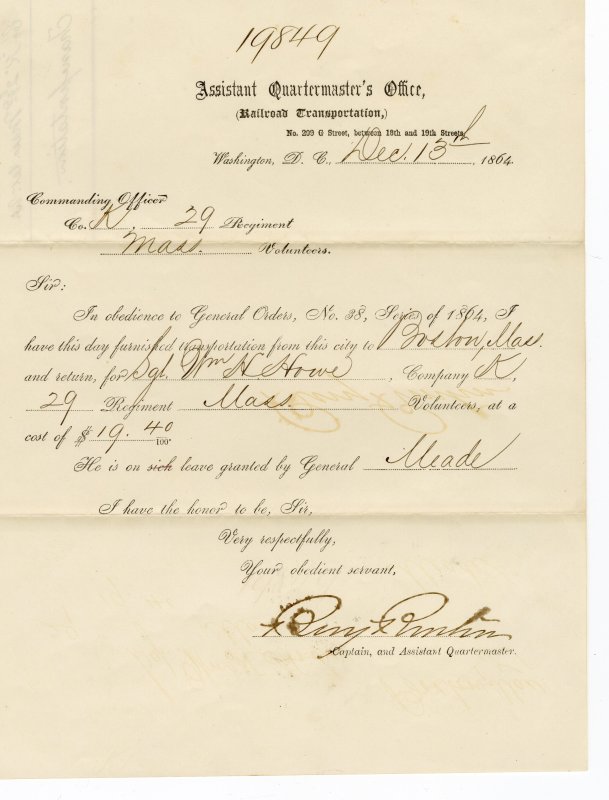 19849
Assistant Quartermaster's Office,
(Railroad Transportation,)
No. 209 G Street, between 18th and 19th Streets,
Washington, D. C., Dec. 13th, 1864.
Commanding Officer
Co. K, 29 Regiment
Mass. Volunteers.
Sir:
In obedience to General Orders, No. 38, Series of 1864, I
have this day furnished transportation from this city to Boston, Mass.
and return, for Sgt. Wm H Howe, Company K,
29 Regiment Mass. Volunteers, at a
cost of $19.40/100.
He is on sick leave granted by General Meade
I have the honor to be, Sir,
Very respectfully,
Your obedient servant,
Captain, and Assistant Quartermaster.